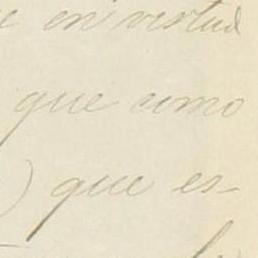 e en virtud
que como
) que es-